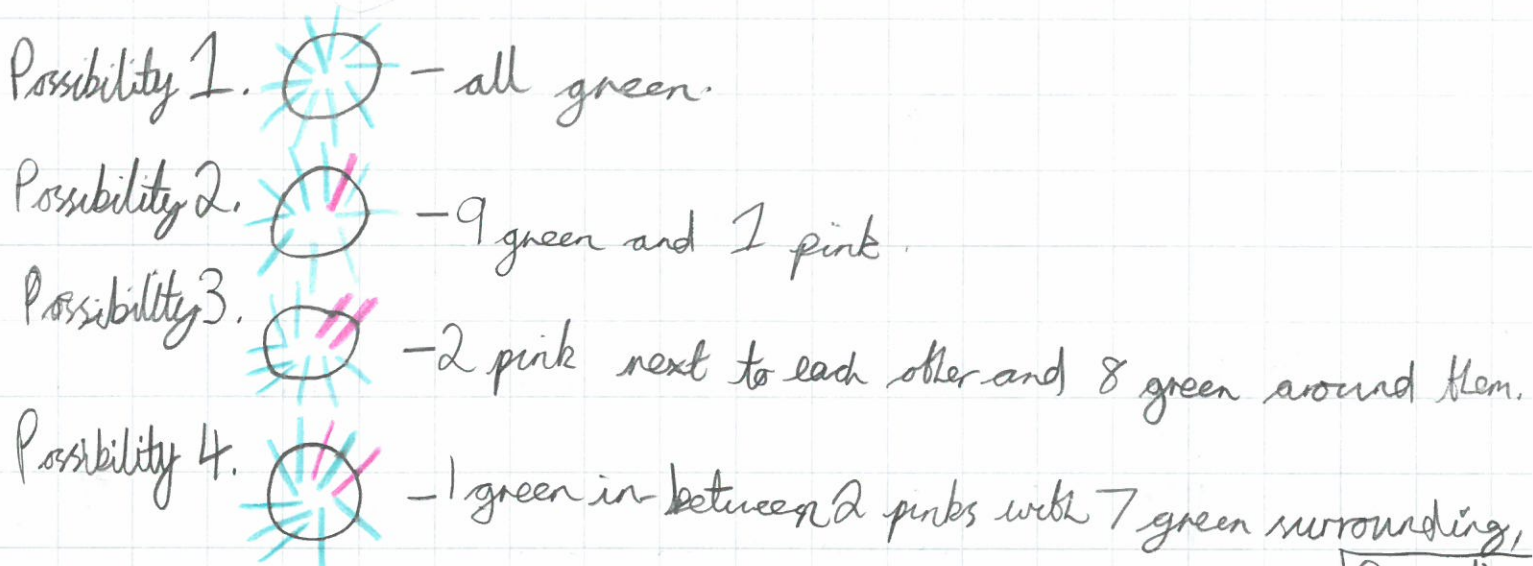 Possibility 1. - all green.
Possibility 2. - 9 green and 1 pink.
Possibility 3. - 2 pink next to each other and 8 green around them.
Possibility 4. - 1 green in between 2 pinks with 7 green surrounding,